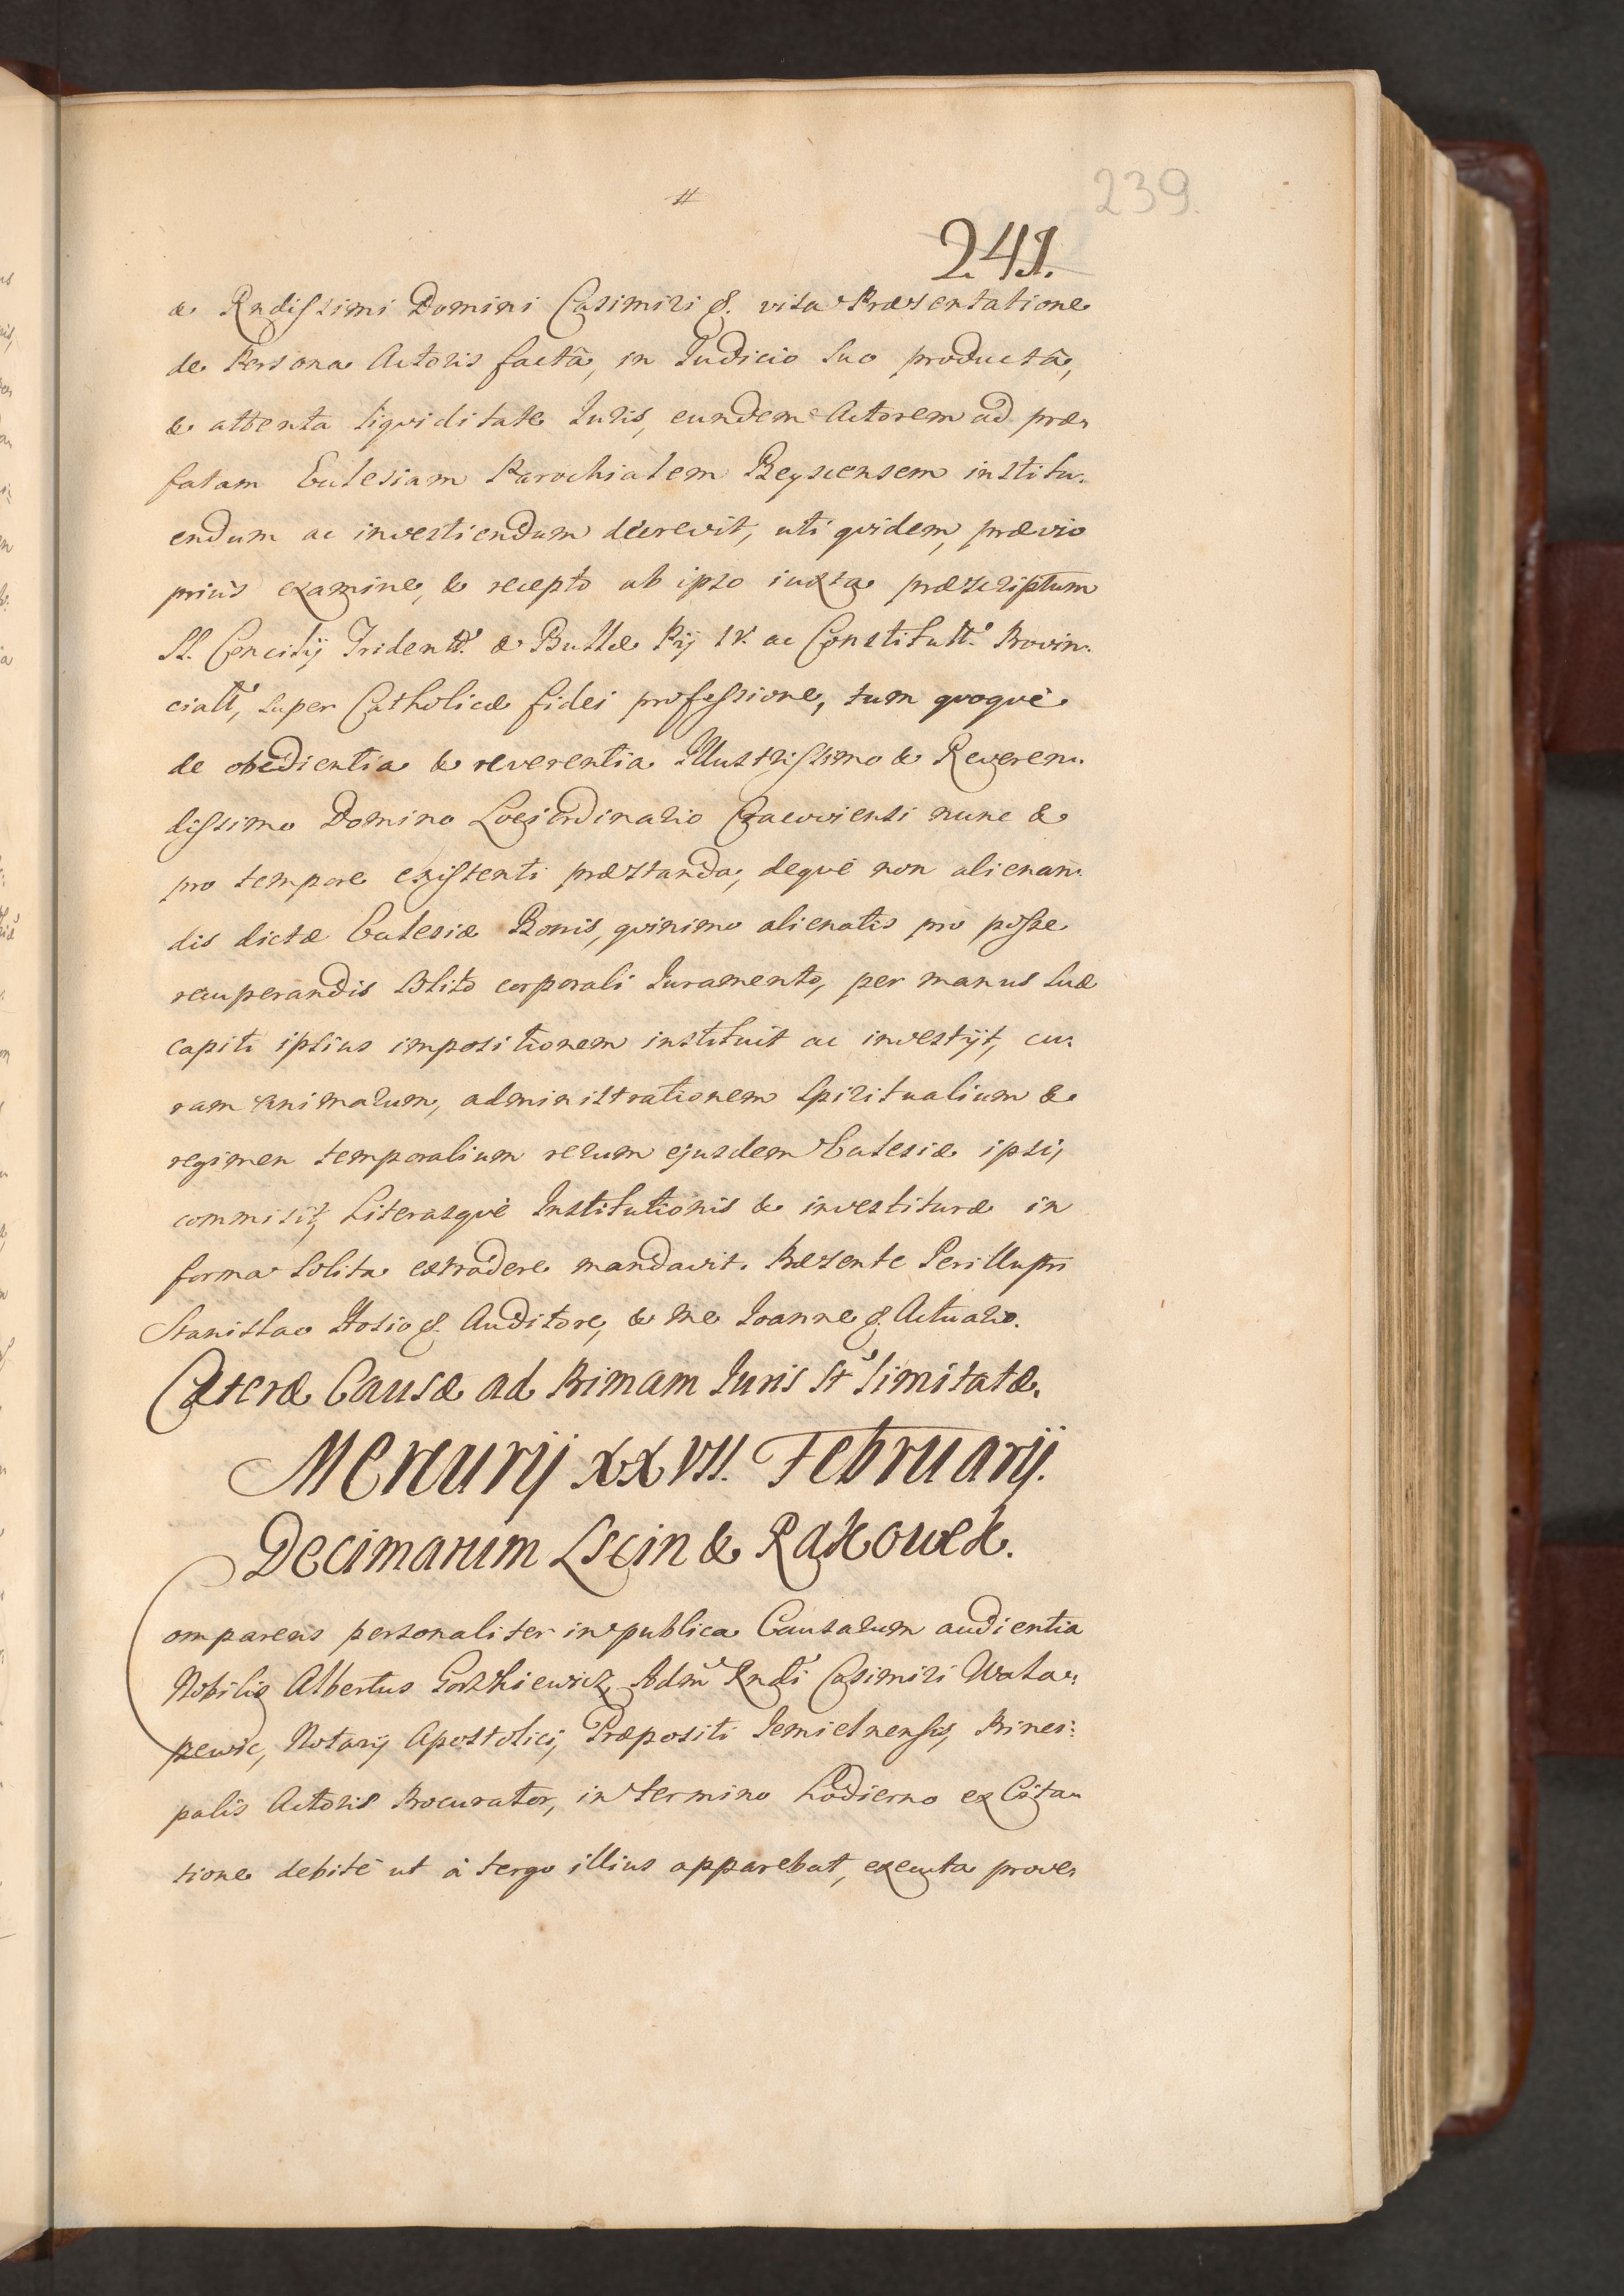 239.
241.
& Rndissimi Domini Casimiri &. visa Præsentatione
de Persona Actoris factâ, in Iudicio suo productâ,
& attenta liquiditate Iuris, eundem Actorem ad præ,
fatam Ecclesiam Parochialem Beyscensem institu,
endum ac investiendum decrevit, uti quidem, prævio
priùs examine, & recepto ab ipso iuxta præscriptum
SS. Concilij Tridentt. & Bullæ Pij IV. ac Constitutt. Provin,
ciall, super Catholicæ fidei professione, tum quoquè
de obedientia & reverentia Illustrissimo & Reveren,
dissimo Domino Loci Ordinario Cracoviensi nunc &
pro tempore existenti præstanda, dequè non alienan,
dis dictæ Ecclesiæ Bonis, quinimo alienatis pro posse
recuperandis solito corporali Iuramento, per manus suæ
capiti ipsius impositionem instituit ac investijt, cu,
ram animarum, administrationem spiritualium &
regimen temporalium rerum ejusdem Ecclesiæ ipsi,
commisit, Literasquè Institutionis & investituræ in
forma solita extradere mandavit. Præsente Perillustri
Stanislao Hosio &. Auditore, & me Ioanne &. Actuario.
Cæteræ Causæ ad Primam Iuris st limitatæ.
Mercurij XXVII. Februarij.
Decimarum Lscin & Rakowek.
Comparens personaliter in publica Causarum audientia
Nobilis Albertus Adm Rndi Casimiri Wata,
pewic, Notarij Apostolici, Præpositi Iemielnensis, Princi,
palis Actoris Procurator, in termino hodierno ex Cita,
tione debitè ut à tergo illius apparebat, executa prove,